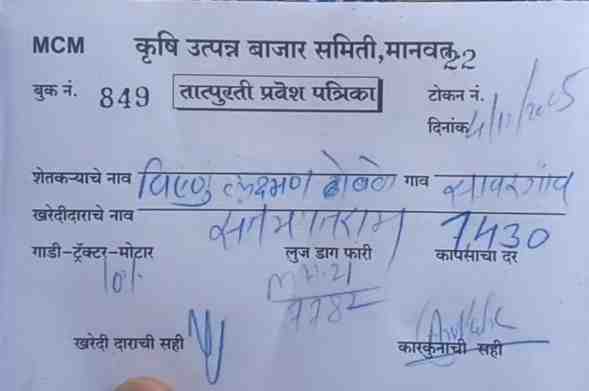 MCM कृषि उत्पन्न बाजार समिती,मानवत 22
बुक नं. 849 तात्पुरती प्रवेश पत्रिका टोकन नं.
दिनांक 4/11/2025
शेतकऱ्याचे नाव विष्णु लक्ष्मण गाव सावरगांव
खरेदीदाराचे नाव 7430
गाडी-ट्रॅक्टर-मोटार लुज डाग फारी कापसाचा दर
10%
MH.21
7782
खरेदी दाराची सही कारकुनाची सही